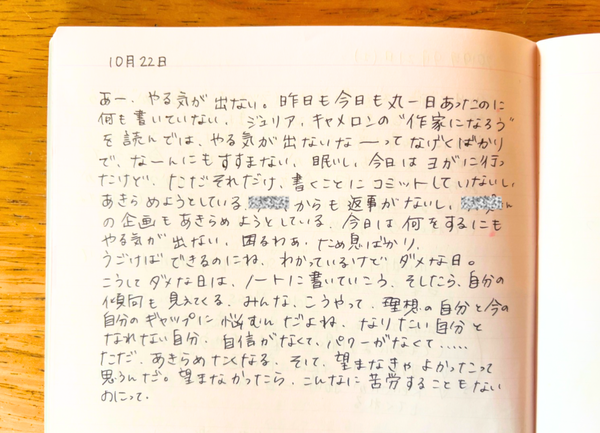 10月22日
あー、やる気が出ない。昨日も今日も丸一日あったのに
何も書いていない。ジュリア、キャメロンの"作家になろう"
を読んでは、やる気が出ないなーってなげくばかり
で、なーんにもすすまない、眠いし、今日はヨガに行っ
たけど、ただそれだけ、書くことにコミットしていないし、
あきらめようとしている、からも返事がないし、ん
の企画もあきらめようとしている、今日は何をするにも
やる気が出ない、困るわぁ、ため息ばかり、
うごけばできるのにね、わかっているけどダメな日。
こうしてダメな日は、ノートに書いていこう、そしたら、自分の
傾向も見えてくる、みんな、こうやって、理想の自分と今の
自分のギャップに悩むんだよね、なりたい自分と
なれない自分、自信がなくて、パワーがなくて.....
ただ、あきらめたくなる、そして、望まなきゃよかったって
思うんだ。望まなかったら、こんなに苦労することもない
のにって.